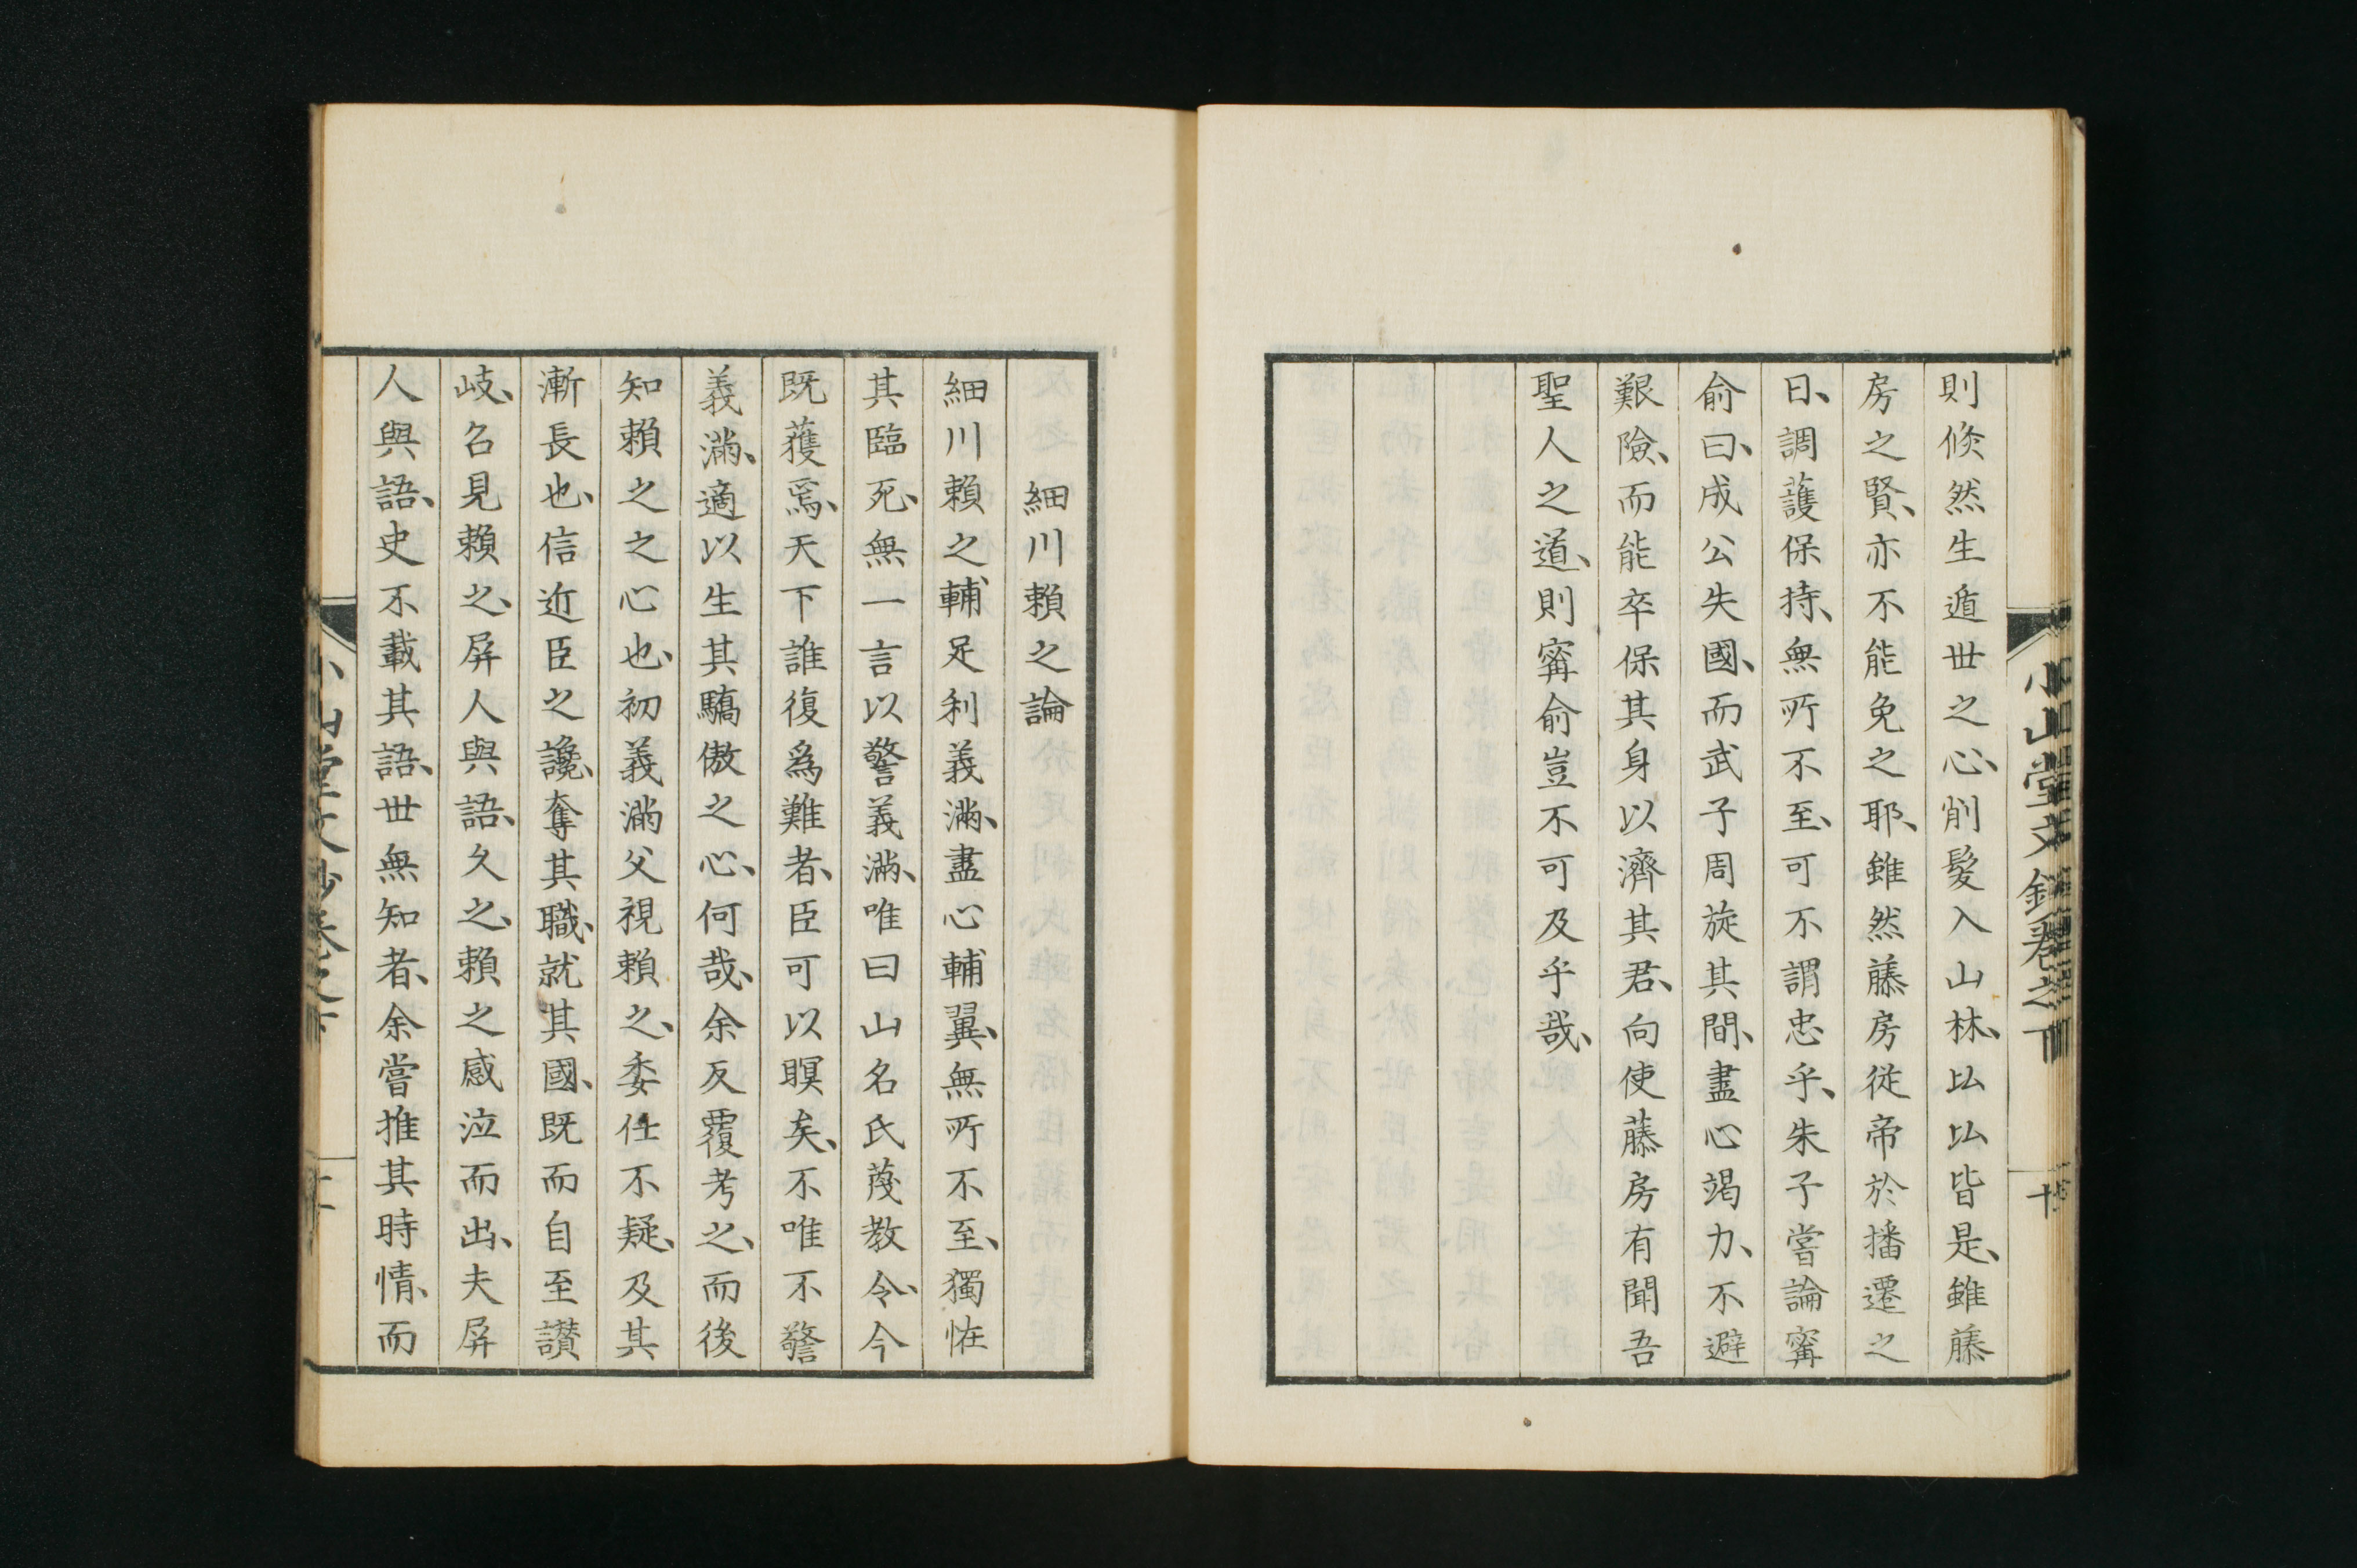 小山堂文鈔卷之下
十
則倏然生遁世之心、削髮入山林、比比皆是、雖藤
房之賢、亦不能免之耶、雖然藤房從帝於播遷之
日、調護保持、無所不至、可不謂忠乎、朱子嘗論甯
俞曰、成公失國、而武子周旋其間、盡心竭力、不避
艱險、而能卒保其身以濟其君、向使藤房有聞吾
聖人之道、則甯俞豈不可及乎哉、
細川賴之論
細川賴之輔足利義滿、盡心輔翼、無所不至、獨恠
其臨死、無一言以警義滿、唯曰山名氏蔑教令、今
既獲焉、天下誰復爲難者、臣可以瞑矣、不唯不警
義滿、適以生其驕傲之心、何哉、余反覆考之、而後
知賴之之心也、初義滿父視賴之、委任不疑、及其
漸長也、信近臣之讒、奪其職、就其國、既而自至讃
岐、召見賴之、屏人與語、久之、賴之感泣而出、夫屏
人與語、史不載其語、世無知者、余嘗推其時情、而
小山堂文鈔卷之下